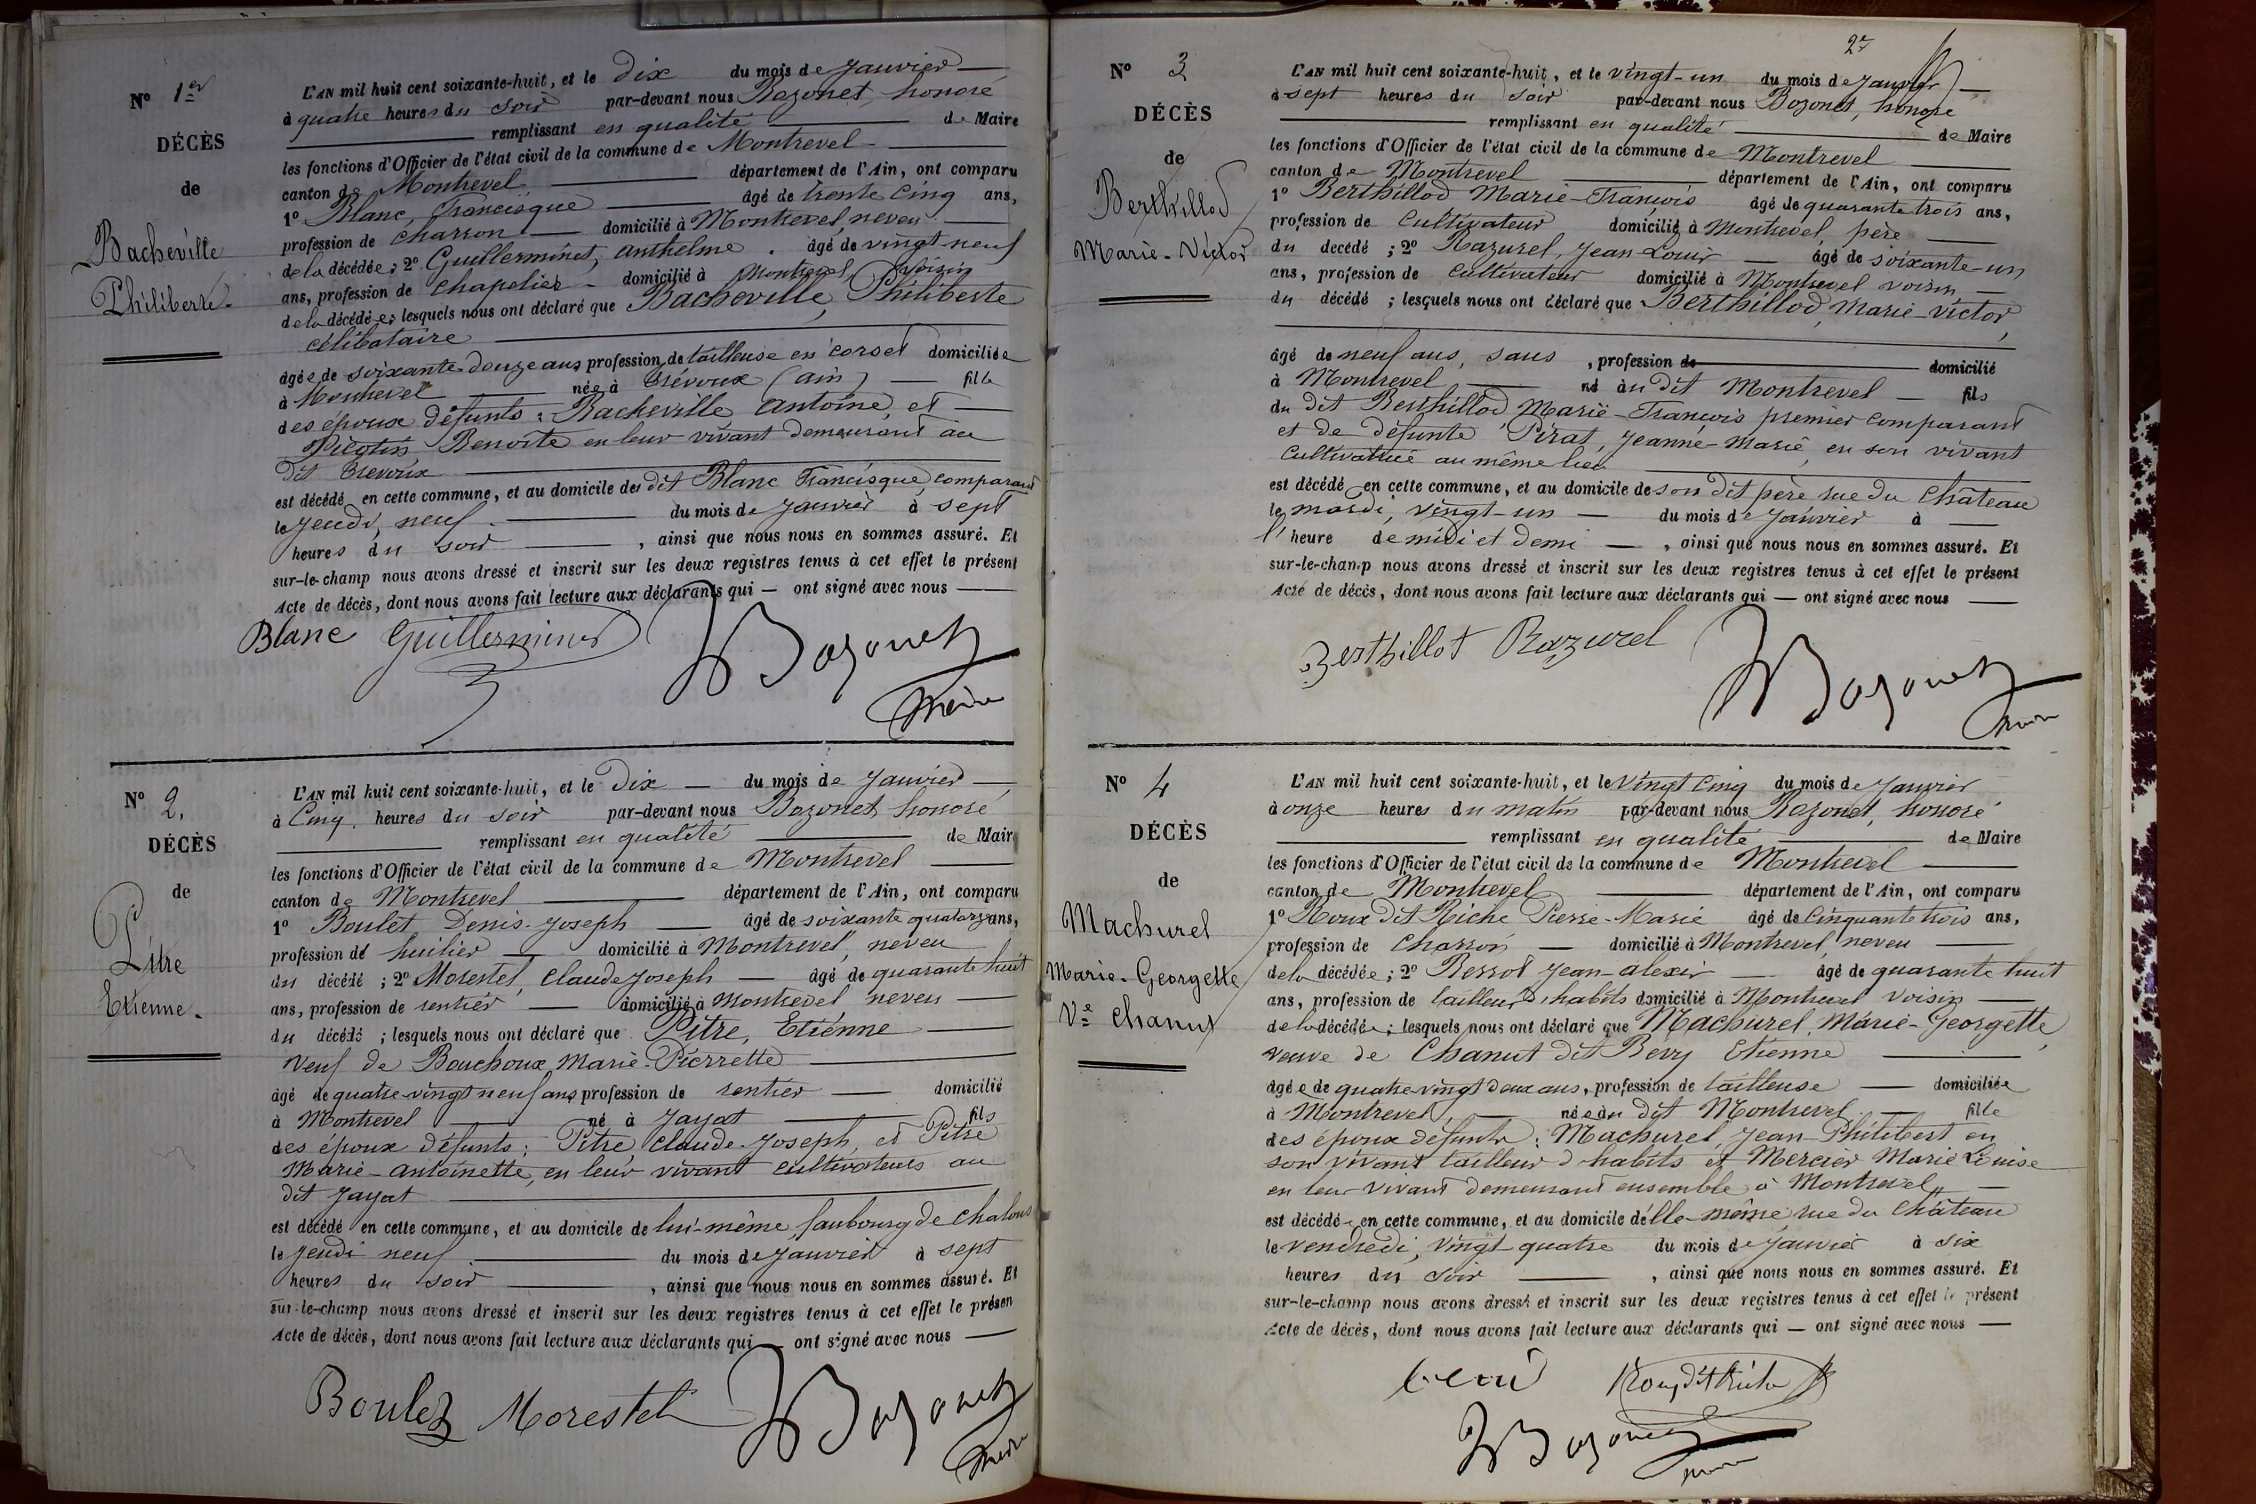 N° 1er
DÉCÈS
de
Bacheville
Philiberte.
L'AN mil huit cent soixante-huit, et le dix du mois de Janvier
à quatre heures du soir par-devant nous Bozonet, honoré
remplissant en qualité de Maire
les fonctions d'Officier de l'état civil de la commune de Montrevel
canton de Montrevel département de l'Ain, ont comparu
1° Blanc, Francisque âgé de trente cinq ans,
profession de charron domicilié à Montrevel, neveu
de la décédée; 2° Guillerminet, anthelme. âgé de vingt-neuf
ans, profession de chapelier domicilié à Montrevel, voisin
de la décédée; lesquels nous ont déclaré que Bacheville, Philiberte
célibataire
âgée de soixante-douze ans profession de tailleuse en corset domiciliée
à Montrevel née à Trévoux (ain) fille
des époux défunts: Bacheville Antoine, et
Nicolin Benoite en leur vivant demeurant au
dit Trévoux
est décédé en cette commune, et au domicile des dit Blanc Francisque, comparant
le jeudi, neuf du mois de Janvier à sept
heures du soir, ainsi que nous nous en sommes assuré. Et
sur-le-champ nous avons dressé et inscrit sur les deux registres tenus à cet effet le présent
Acte de décès, dont nous avons fait lecture aux déclarants qui — ont signé avec nous
Blanc Guillerminet HBozonet
maire
N° 2.
DÉCÈS
de
Pitre
Etienne.
L'AN mil huit cent soixante-huit, et le Dix du mois de Janvier
à Cinq heures du soir par-devant nous Bozonet, honoré
remplissant en qualité de Maire
les fonctions d'Officier de l'état civil de la commune de Montrevel
canton de Montrevel département de l'Ain, ont comparu
1° Boulet, Denis-Joseph âgé de soixante quatorze ans,
profession de huilier domicilié à Montrevel, neveu
du décédé; 2° Morestel, Claude Joseph âgé de quarante huit
ans, profession de rentier domicilié à Montrevel neveu
du décédé; lesquels nous ont déclaré que Pitre, Etiénne
Veuf de Bouchoux Marie-Pierrette
âgé de quatre-vingt neuf ans profession de rentier domicilié
à Montrevel né à Jayat fils
des époux défunts: Pitre, Claude-Joseph, et Pitre
Marie-Antoinette, en leur vivant cultivateurs au
dit Jayat
est décédé en cette commune, et au domicile de lui-même, faubourg de Chalons
le Jeudi neuf du mois de Janvier à sept
heures du soir, ainsi que nous nous en sommes assuré. Et
sur-le-champ nous avons dressé et inscrit sur les deux registres tenus à cet effet le présen
Acte de décès, dont nous avons fait lecture aux déclarants qui — ont signé avec nous
Boulet Morestel HBozonet
maire
2e
N° 3
DÉCÈS
de
Berthillod
Marie-Victor
L'AN mil huit cent soixante-huit, et le vingt-un du mois de Janvier
à sept heures du soir par-devant nous Bozonet, honoré
remplissant en qualité de Maire
les fonctions d'Officier de l'état civil de la commune de Montrevel
canton de Montrevel département de l'Ain, ont comparu
1° Berthillod Marie-François âgé de quarante trois ans,
profession de Cultivateur domicilié à Montrevel, père
du décédé; 2° Razurel, Jean-Louis âgé de soixante-un
ans, profession de Cultivateur domicilié à Montrevel voisin
du décédé; lesquels nous ont déclaré que Berthillod, Marie-Victor,
âgé de neuf ans, sans, profession de domicilié
à Montrevel né àu dit Montrevel fils
du dit Berthillod Marie-François premier comparant
et de défunte Pirat, Jeanne-Marie, en son vivant
cultivatrice au même lieu
est décédé en cette commune, et au domicile de son dit père rue du Château
le mardi, vingt-un du mois de Janvier à
l'heure de midi et demi, ainsi que nous nous en sommes assuré. Et
sur-le-champ nous avons dressé et inscrit sur les deux registres tenus à cet effet le présent
Acte de décès, dont nous avons fait lecture aux déclarants qui — ont signé avec nous
Berthillot Razurel HBozonet
maire
N° 4
DÉCÈS
de
Machurel
Marie-Georgette
Ve Chanut
L'AN mil huit cent soixante-huit, et le Vingt Cinq du mois de Janvier
à onze heures du matin par-devant nous Bozonet, honoré
remplissant en qualité de Maire
les fonctions d'Officier de l'état civil de la commune de Montrevel
canton de Montrevel département de l'Ain, ont comparu
1° Roux dit Riche Pierre-Marie âgé de Cinquante trois ans,
profession de Charron domicilié à Montrevel, neveu
de la décédée; 2° Jean-Alexis âgé de quarante huit
ans, profession de tailleur d'habits domicilié à Montrevel voisin
de la décédée; lesquels nous ont déclaré que Machurel, Marie-Georgette,
veuve de Chanut dit Bevy Etienne
âgée de quatre-vingt deux ans, profession de tailleuse domiciliée
à Montrevel, née àu dit Montrevel fille
des époux défunts: Machurel, Jean-Philibert en
son vivant tailleur d'habits et Mercier Marie Louise
en leur vivant demeurant ensemble à Montrevel
est décédée en cette commune, et au domicile d'elle-même, rue du Château
le Vendredi, Vingt quatre du mois de Janvier à six
heures du soir, ainsi que nous nous en sommes assuré. Et
sur-le-champ nous avons dressé et inscrit sur les deux registres tenus à cet effet le présent
Acte de décès, dont nous avons fait lecture aux déclarants qui — ont signé avec nous
Roux dit Riche
HBozonet
maire